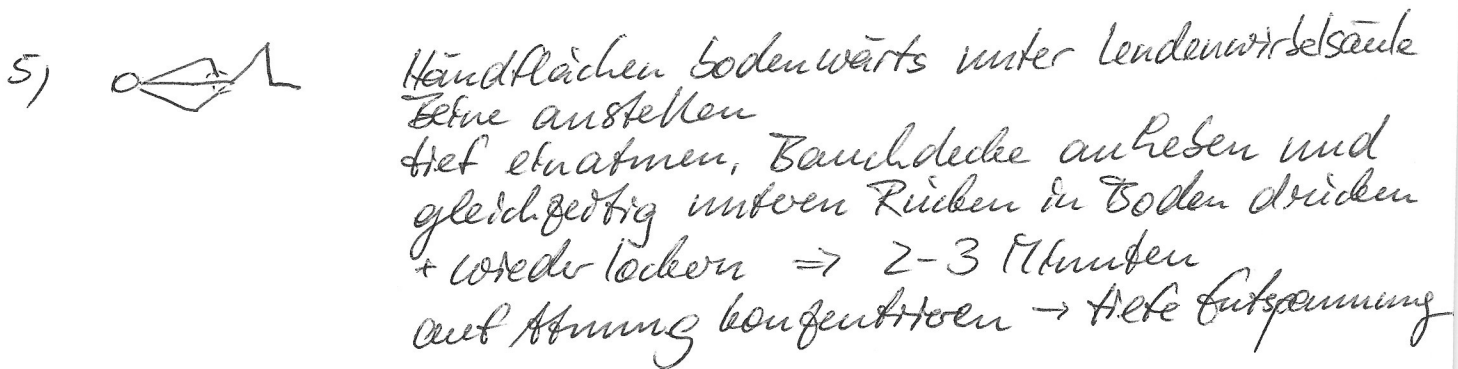 5) Handflächen bodenwärts unter Lendenwirbelsäule
Beine anstellen
tief einatmen, Bauchdecke anheben und
gleichzeitig unteren Rücken in Boden drücken
+ wieder lockern => 2-3 Minuten
auf Atmung konzentrieren → tiefe Entspannung